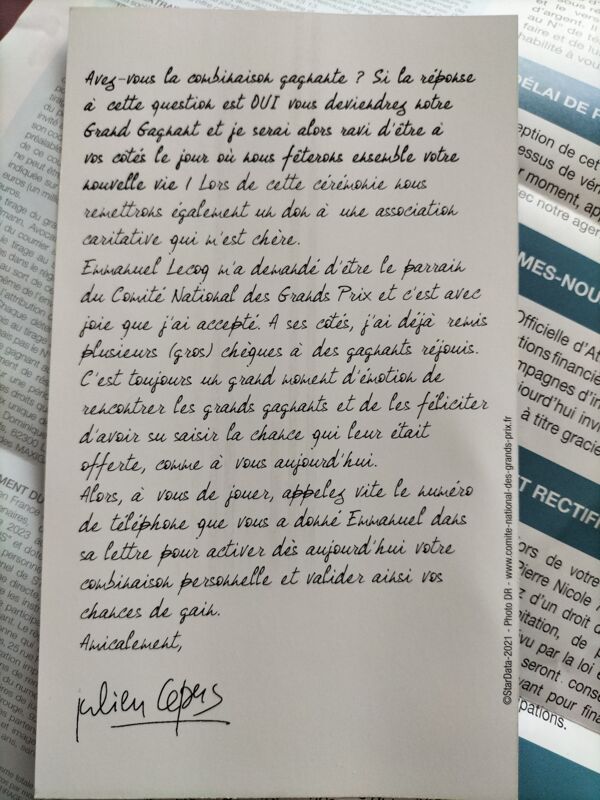 Avez-vous la combinaison gagnante ? Si la réponse
à cette question est OUI vous deviendrez notre
Grand Gagnant et je serai alors ravi d'être à
vos côtés le jour où nous fêterons ensemble votre
nouvelle vie ! Lors de cette cérémonie nous
remettrons également un don à une association
caritative qui m'est chère.
Emmanuel Lecoq m'a demandé d'être le parrain
du Comité National des Grands Prix et c'est avec
joie que j'ai accepté. A ses cotés, j'ai déjà remis
plusieurs (gros) chèques à des gagnants réjouis.
C'est toujours un grand moment d'émotion de
rencontrer les grands gagnants et de les féliciter
d'avoir su saisir la chance qui leur était
offerte, comme à vous aujourd'hui.
Alors, à vous de jouer, appelez vite le numéro
de téléphone que vous a donné Emmanuel dans
sa lettre pour activer dès aujourd'hui votre
combinaison personnelle et valider ainsi vos
chances de gain.
Amicalement,
julien Lepers
©StarData-2021 - Photo DR - www.comite-national-des-grands-prix.fr
d'argent. Il
au N° de té
faire et de lu
habilité à vou
DÉLAI DE
eption de cet
essus de vér
r moment, app
ec notre agen
MES-NOU
Officielle d'At
tions financiè
mpagnes d'in
jourd'hui invi
à titre gracie
T RECTIFI
ors de votre
Pierre Nicole
z d'un droit d
nitation, de
vu par la loi e
seront conse
vant pour fina
ipations.